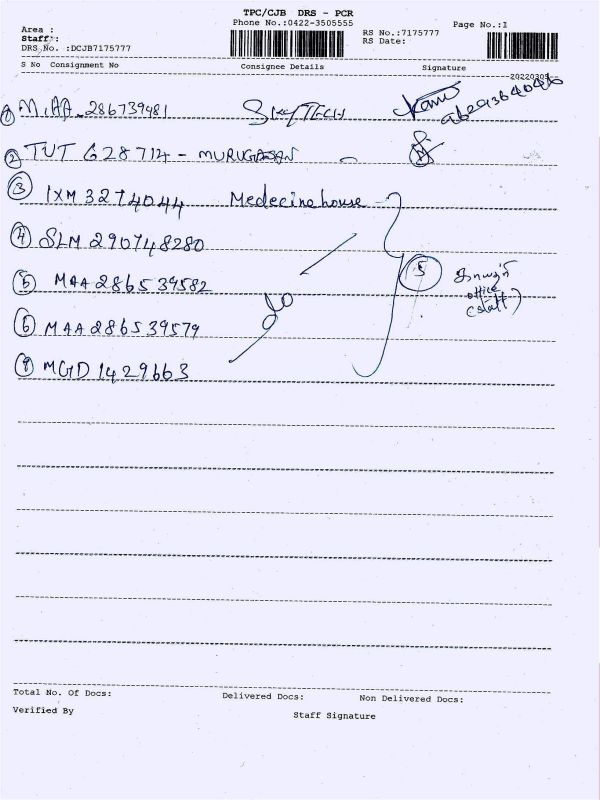 TPC/CJB DRS - PCR
Phone No.:0422-3505555
Page No.:I
Area :
Staff:
RS No.:7175777
DRS No. :DCJB7175777
RS Date:
S No Consignment No Consignee Details Signature
20220305
① MAA 286739481 SKYTECH
② TUT 628714 - MURUGESAN
③ IXM 3274044 Medecine house
④ SLM 290748280
⑤ MAA 286539582 do 5
office
(staff)
⑥ MAA 286539579
MGD 1429663
Total No. Of Docs: Delivered Docs: Non Delivered Docs:
Verified By Staff Signature